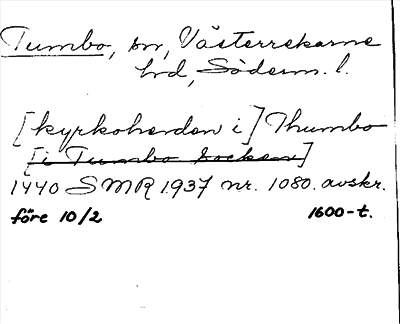 Tumbo, sn, Västerrekarne
hd, Söderm. l.
[kyrkoherden i] Thumbo
[i Tumbo socken]
1440 SMR 1937 nr. 1080. avskr.
före 10/2 1600-t.